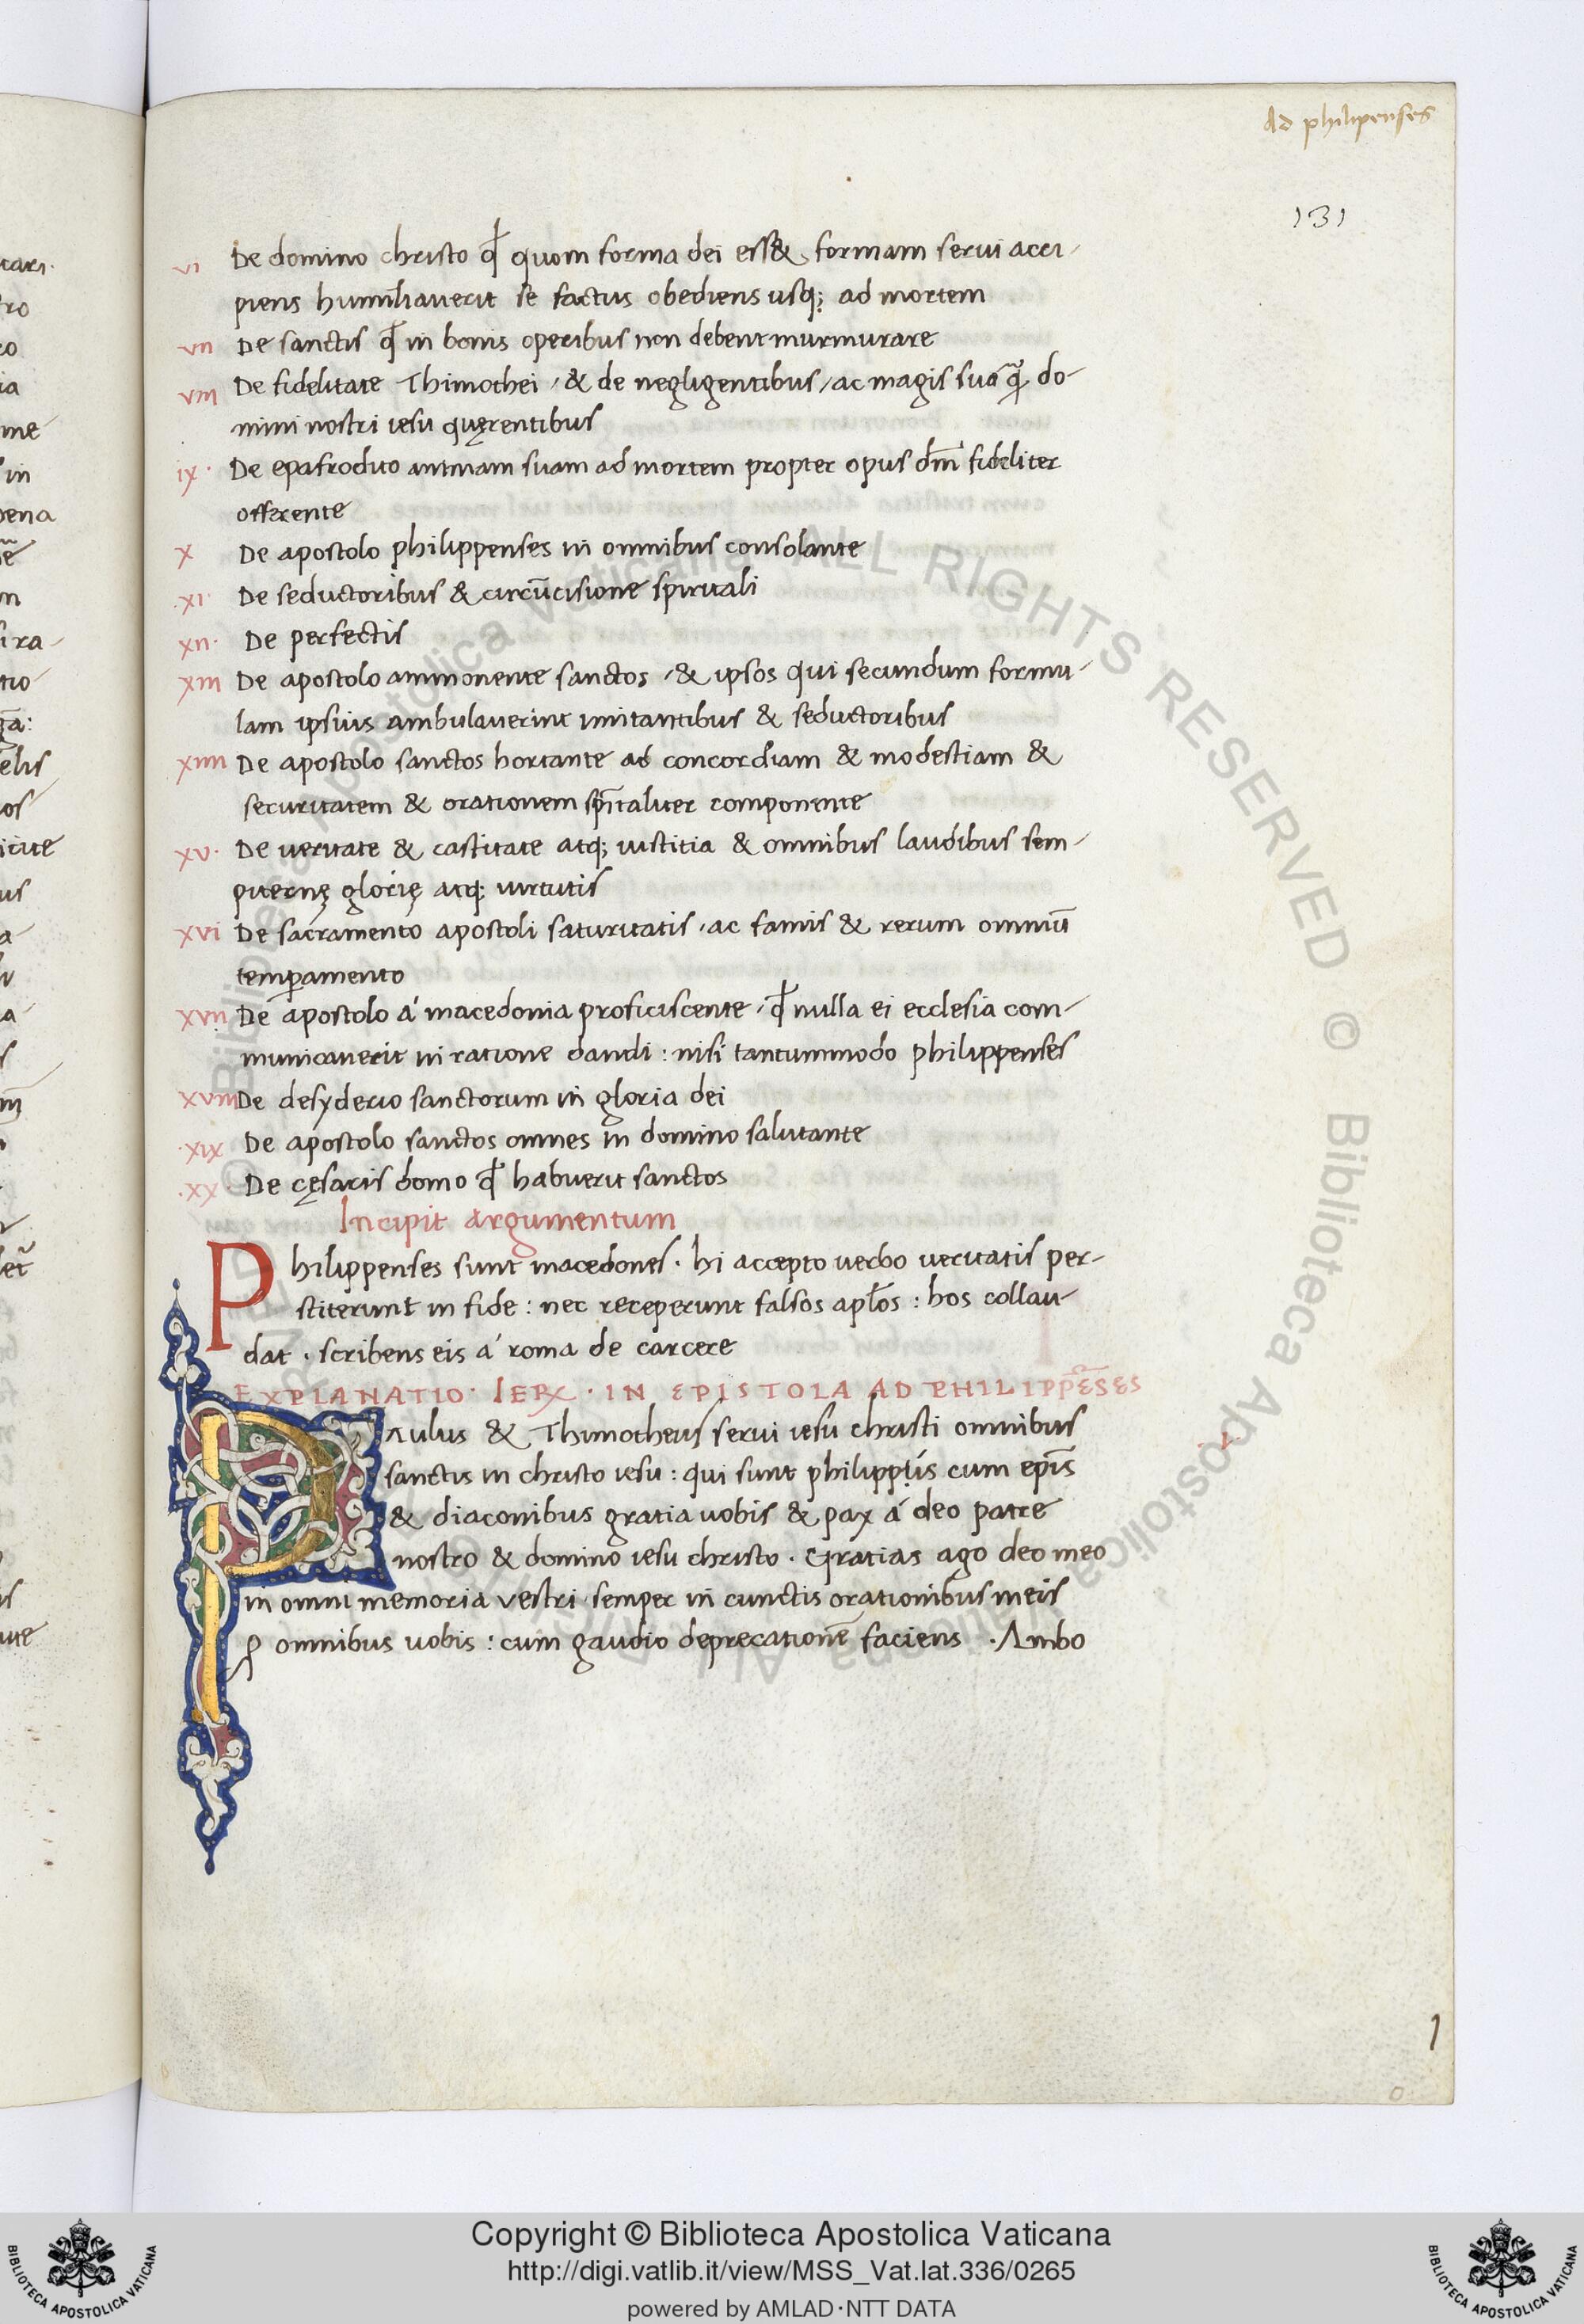 Ad philipenses
131
vi De domino christo qđ quom forma dei ess& formam servi acci-
piens humiliaverit se factus obediens usq; ad mortem
vii De sanctis qđ in bonis operibus non debent murmurare
viii De fidelitate Thimothei / & de negligentibus / ac magis sua q̃ do-
mini nostri iesu quęrentibus
ix De epafrodito animam suam ad mortem propter opus dm̃ fideliter
offerente
x De apostolo philippenses in omnibus consolante
xi De seductoribus & circũcisione spirituali
xii De perfectis
xiii De apostolo ammonente sanctos / & ipsos qui secundum formu-
lam ipsius ambulaverint imitantibus & seductoribus
xiiii De apostolo sanctos hortante ad concordiam & modestiam &
securitatem & orationem spr̃italiter componente
xv De veritate & castitate atq; iustitia & omnibus laudibus sem-
piternę glorię atq; virtutis
xvi De sacramento apostoli saturitatis / ac famis & rerum omniũ
temp̱amento
xvii De apostolo á macedonia proficiscente / qđ nulla ei ecclesia com-
municaverit in ratione dandi : nisi tantummodo philippenses
xviii De desyderio sanctorum in gloria dei
xix De apostolo sanctos omnes in domino salutante
xx De cęsaris domo qđ habuerit sanctos
Incipit argumentum
Philippenses sunt macedones . hi accepto verbo veritatis per-
stiterunt in fide : nec receperunt falsos apl̃os : hos collau-
dat . scribens eis á roma de carcere
EXPLANATIO . IER . IN EPISTOLA AD PHILIPPẼSES
PAulus & Thimotheus servi iesu christi omnibus
sanctis in christo iesu : qui sunt philippis cum ep̃is
& diaconibus gratia vobis & pax á deo patre
nostro & domino iesu christo . Gratias ago deo meo
in omni memoria vestri semper in cunctis orationibus meis
ꝓ omnibus vobis : cum gaudio deprecationẽ faciens . Ambo
1
© Biblioteca Apostolica Vaticana ALL RIGHTS RESERVED
Copyright © Biblioteca Apostolica Vaticana
http://digi.vatlib.it/view/MSS_Vat.lat.336/0265
powered by AMLAD·NTT DATA
BIBLIOTECA APOSTOLICA VATICANA
BIBLIOTECA APOSTOLICA VATICANA